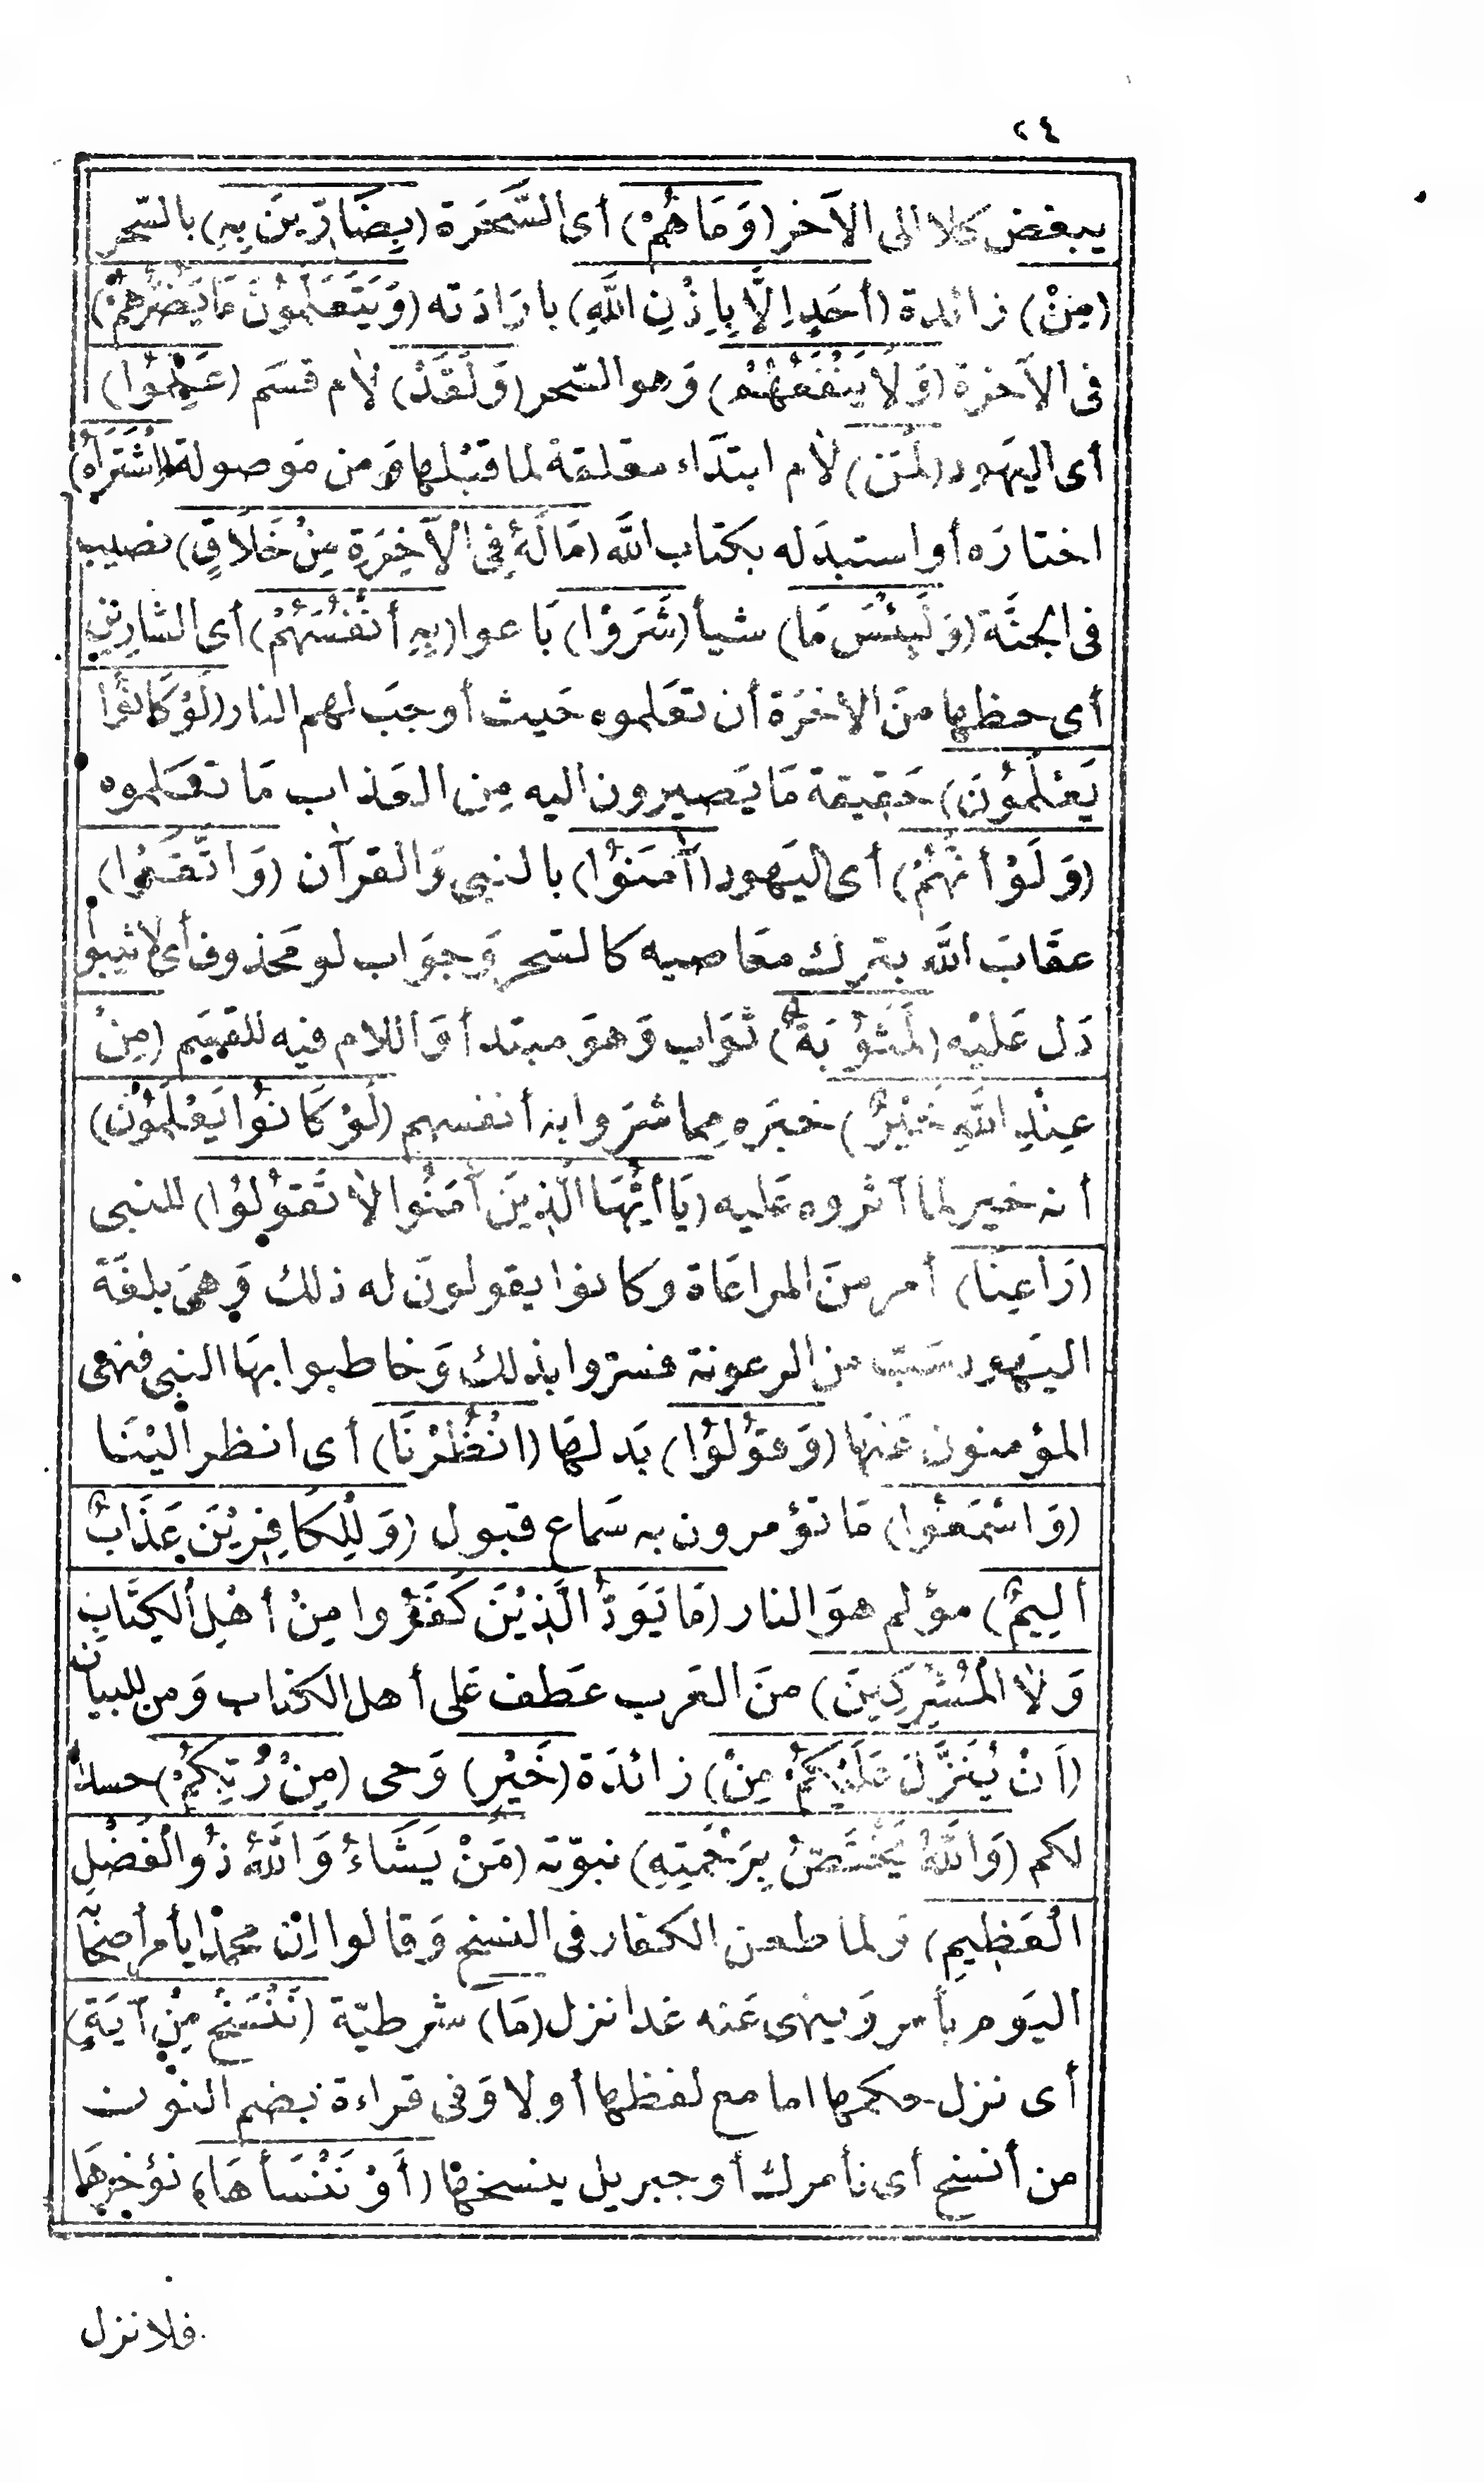 ٢٤
يبغض كلا الى الآخر (وَمَا هُمْ) أى السَّحَرة (بِضَارِّينَ بِهِ) بالسّحر
(مِنْ) زائدة (أَحَدٍ اِلَّا بِاِذْنِ اللَّهِ) بارَادَته (وَيَتَعَلَّمُونَ مَا يَضُرُّهُمْ)
فى الآخرة (وَلَا يَنْفَعُهُمْ) وَهو السّحر (وَلَقَدْ) لَام قسَم (عَلِمُوا)
أى اليَهود (لَمَنِ) لَام ابتدَاء معلقة لما قبْلها وَمن مَوصولة (اشْتَرَاهُ)
اختارَه أو استبدَله بكتاب اللَّه (مَا لَهُ فِى الْآخِرَةِ مِنْ خَلَاقٍ) نصيب
فى الجنَّة (وَلَبِئْسَ مَا) شيأ (شَرَوْا) بَاعوا (بِهِ أَنْفُسَهُمْ) أى الشارين
أى حظها منَ الآخرَة أن تعَلموه حَيث أوجبَ لهم النار (لَوْ كَانُوا
يَعْلَمُونَ) حَقيقة مَا يَصيرون اليه مِن العَذاب مَا تعَلموه
(وَلَوْ أَنَّهُمْ) أى اليَهود (آمَنُوا) بالنبى وَالقرآن (وَاتَّقَوْا)
عقَابَ اللَّه بترك معَاصيه كالسّحر وَجوَاب لو مَحذوف أى لاثيبوا
دَل عَليْه (لَمَثُوبَةٌ) ثوَاب وَهوَ مبتدأ وَاللام فيه للقسَم (مِنْ
عِنْدِ اللَّهِ خَيْرٌ) خبَره مما شرَوا به أنفسهم (لَوْ كَانُوا يَعْلَمُونَ)
أنه خير لما آثروه عَليه (يَا أَيُّهَا الَّذِينَ آمَنُوا لَا تَقُولُوا) للنبى
(رَاعِنَا) أمر منَ المراعَاة وكانوا يقولونَ له ذلك وَهىَ بلغَة
اليَهود سَبّ من الرعونة فسرّوا بذلك وَخاطبوا بهَا النبى فنهى
المؤمنون عَنهَا (وَقُولُوا) بَدلهَا (انْظُرْنَا) أى انظر اليْنَا
(وَاسْمَعُوا) مَا تؤمرون به سَماع قبول (وَلِلْكَافِرِيْنَ عَذَابٌ
أَلِيمٌ) مؤلم هوَ النار (مَا يَوَدُّ الَّذِيْنَ كَفَرُوا مِنْ أَهْلِ الْكِتَابِ
وَلَا الْمُشْرِكِينَ) منَ العَرب عَطف عَلى أهل الكتاب وَمن للبيان
(اَنْ يُنَزَّلَ عَلَيْكُمْ مِنْ) زائدَة (خَيْرٍ) وَحى (مِنْ رَبِّكُمْ) حسدًا
لكم (وَاللَّهُ يَخْتَصُّ بِرَحْمَتِهِ) نبوّته (مَنْ يَشَاءُ وَاللَّهُ ذُو الْفَضْلِ
الْعَظِيمِ) وَلما طعن الكفار فى النسخ وَقالوا اِنّ محمدًا يأمر أصحَابه
اليَوم بأمر وَينهى عَنه غدا نزل (مَا) شرطيّة (نَنْسَخْ مِنْ آيَةٍ)
أى نزل حكمها اما مع لفظها أو لا وَفى قراءة بضم النون
من أنسخ أى نأمرك أو جبريل بنسخها (أَوْ نَنْسَأْهَا) نؤخرهَا
فلا نزل